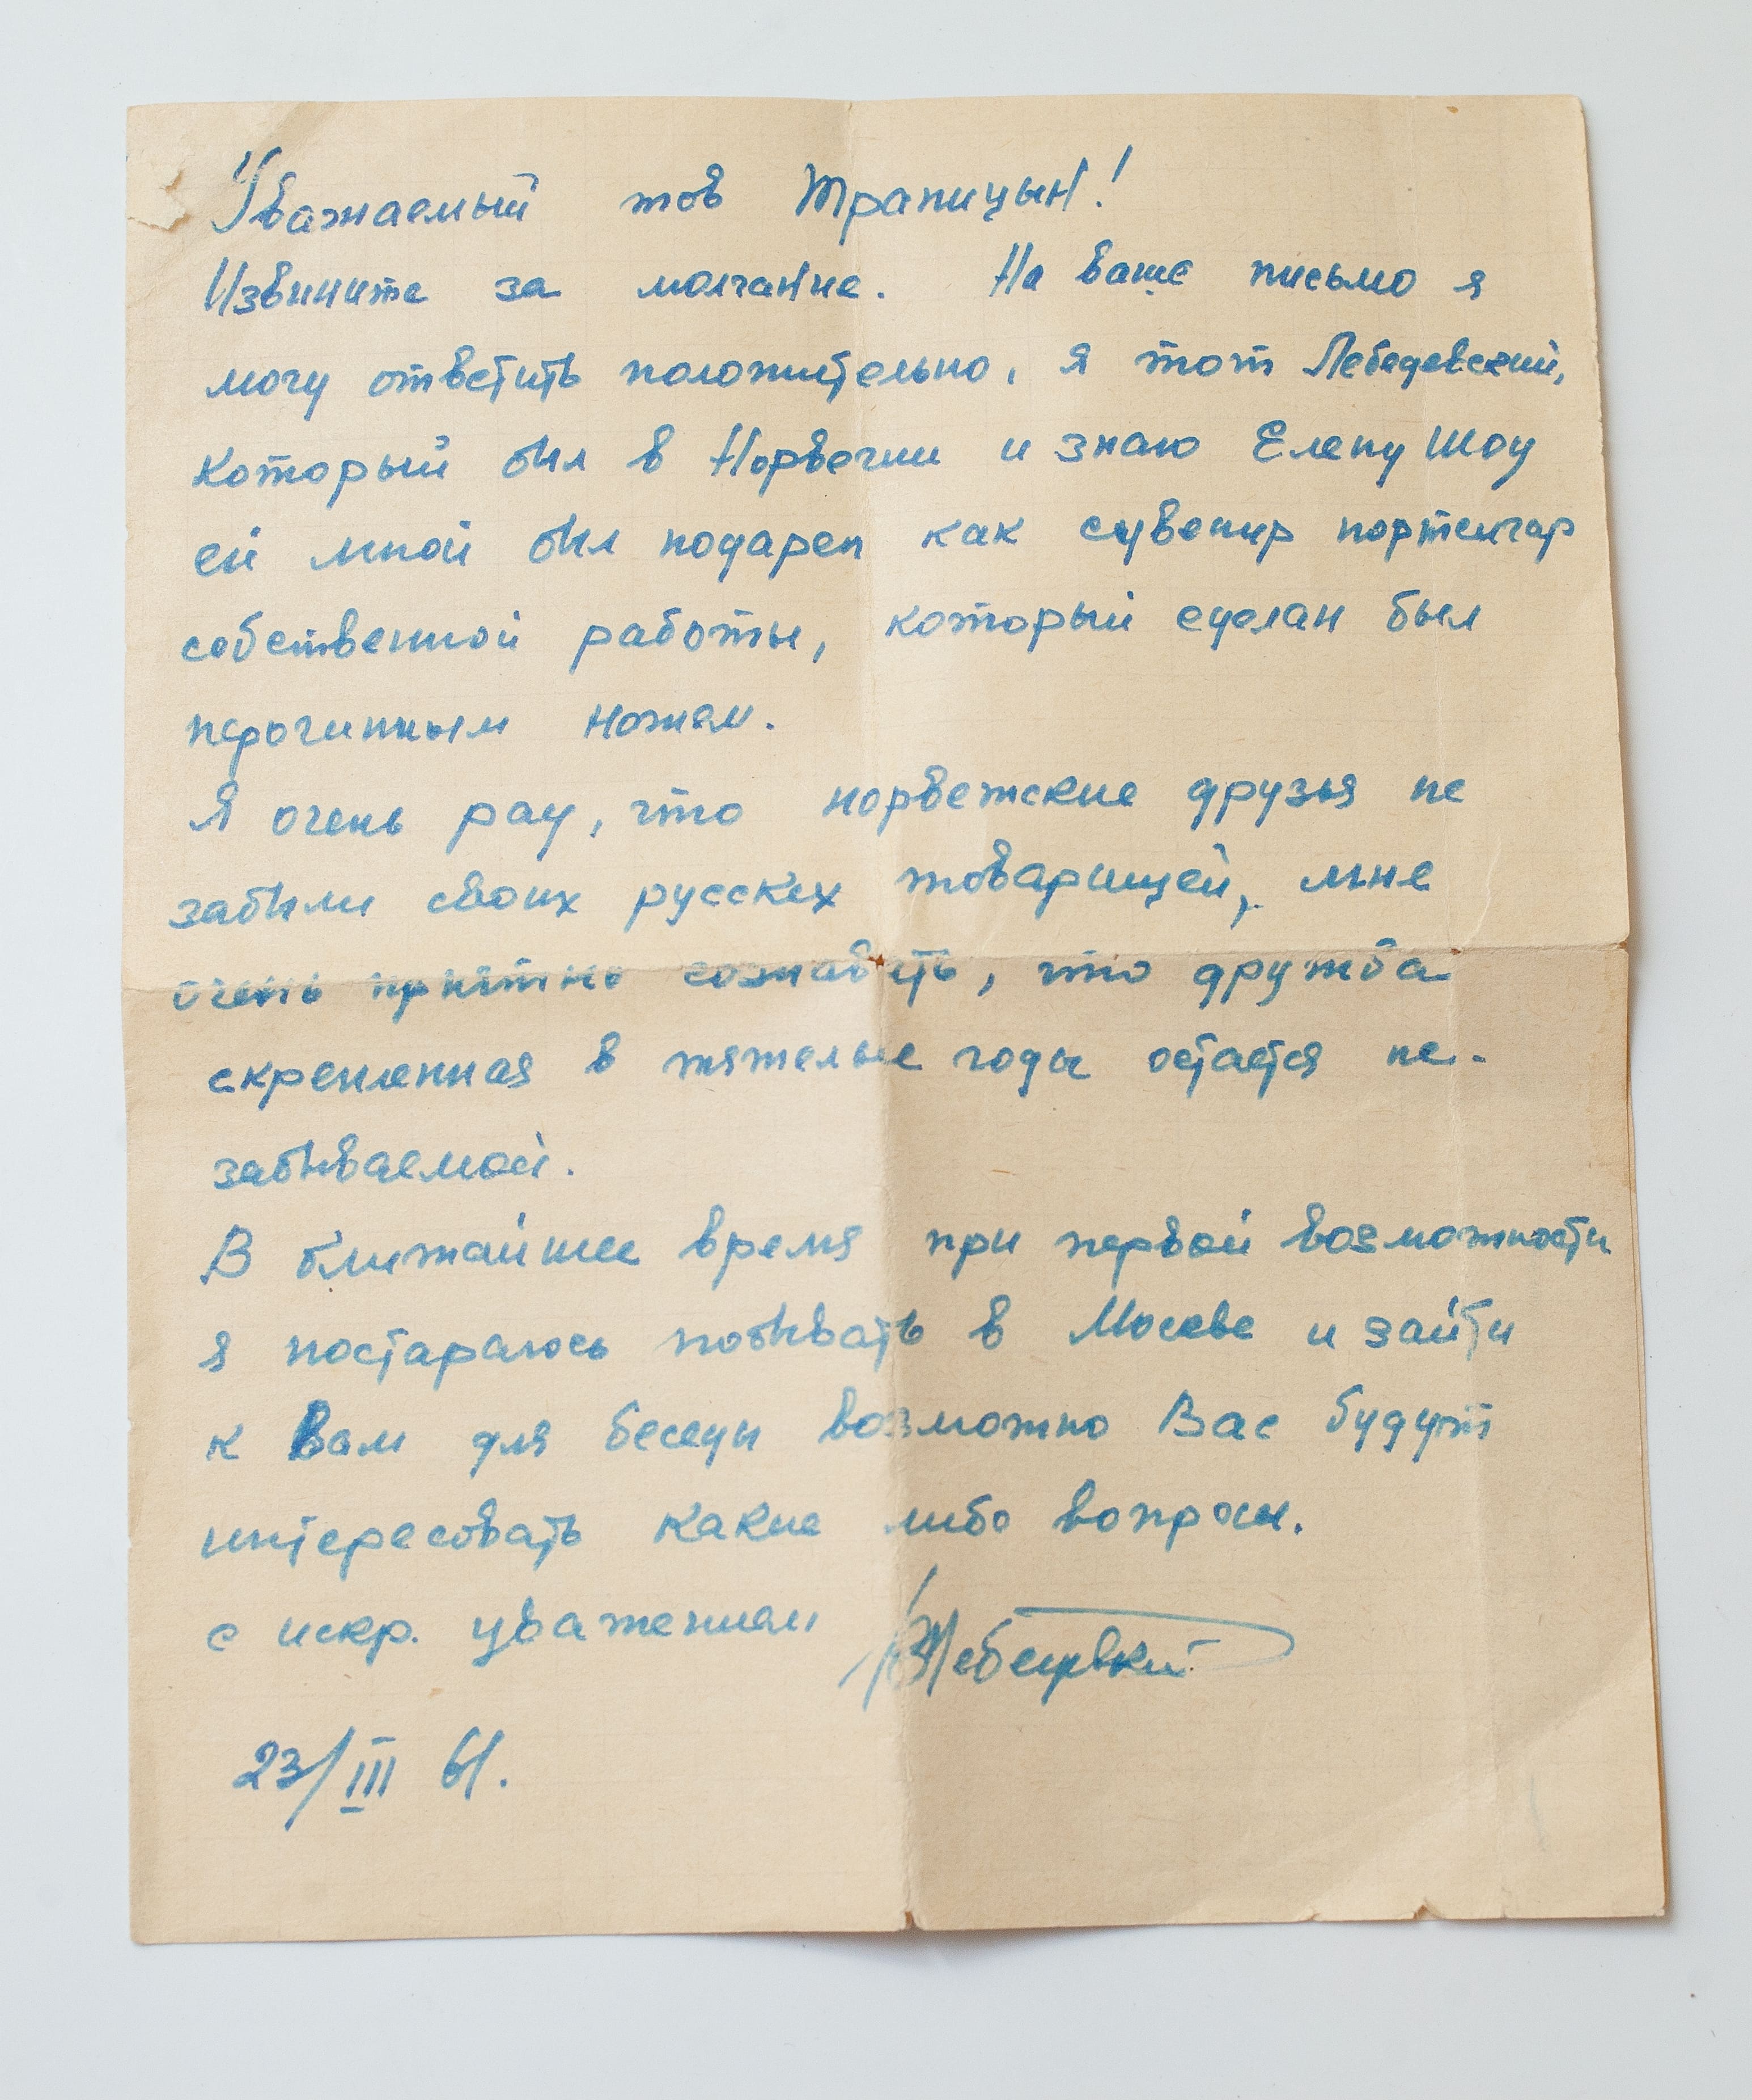 Уважаемый тов Трапицын!
Извините за молчание. На ваше письмо я
могу ответить положительно, я тот Лебедевский,
который был в Норвегии и знаю Елену Шоу
ей мной был подарен как сувенир портсигар
собственной работы, который сделан был
перочинным ножем.
Я очень рад, что норвежские друзья не
забыли своих русских товарищей, мне
очень приятно сознавать, что дружба
скрепленная в тяжелые годы остается не-
забываемой.
В ближайшее время при первой возможности
я постараюсь побывать в Москве и зайти
к Вам для беседы возможно Вас будут
интересовать какие либо вопросы.
с искр. уважением
23/III 61.